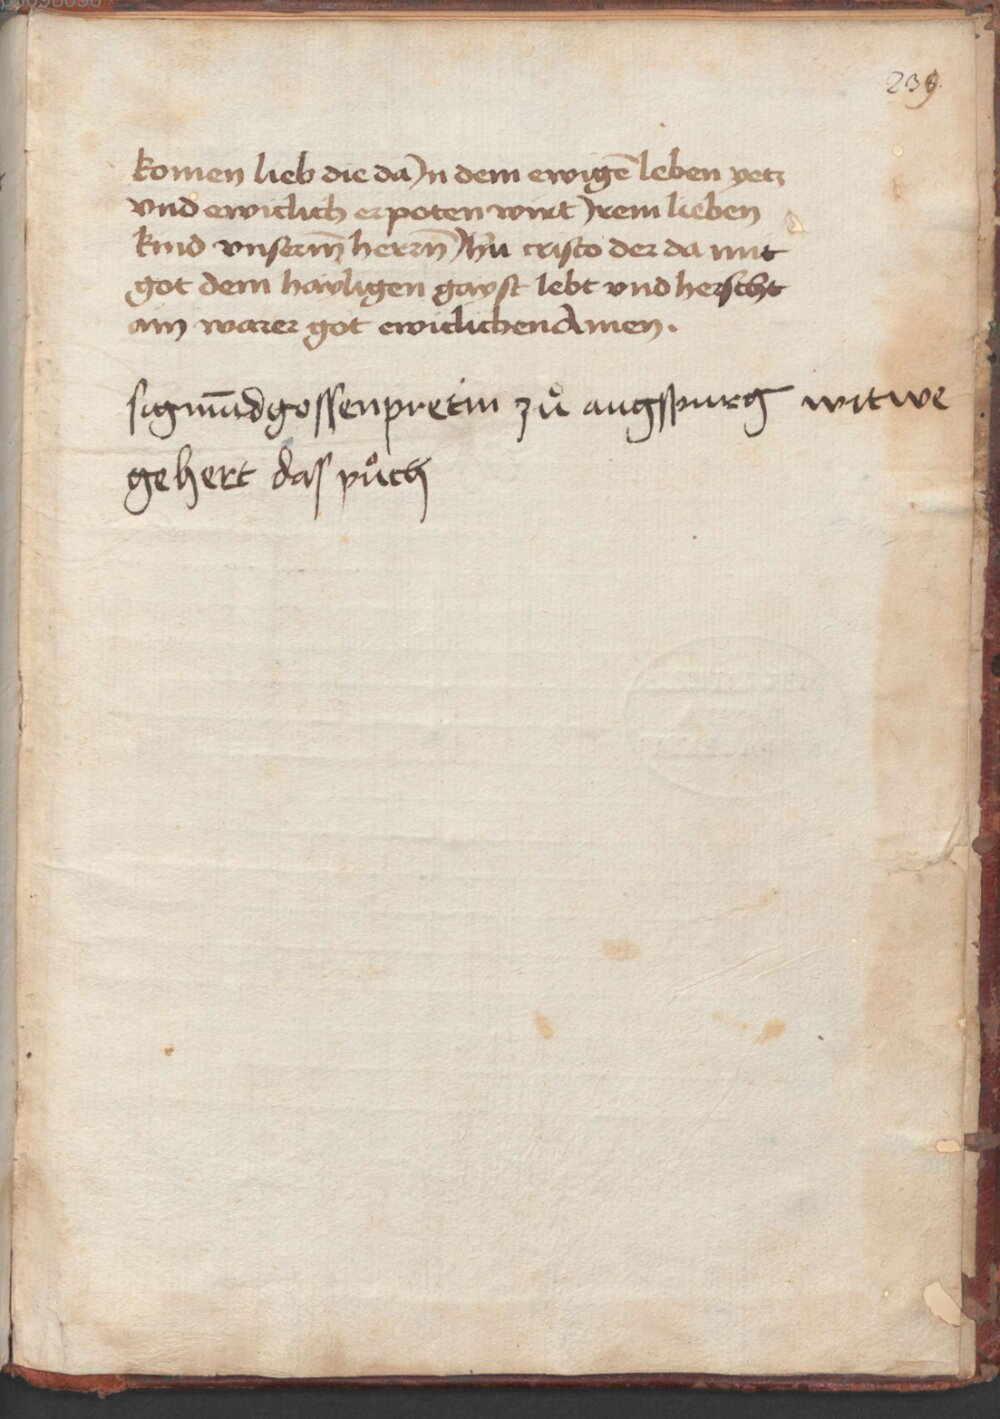 239.
komen lieb die da Jn dem ewigē leben yetz
vnd ewiclich erpoten wirt Jrem lieben
kind vnserm̄ herrn̄ Jhū cristo der da mit
got dem hayligen gayst lebt vnd herscht
ain warer got ewiclichen Amen.
sigmūd gossenpretin zů augspurg witwe
gehert das půch